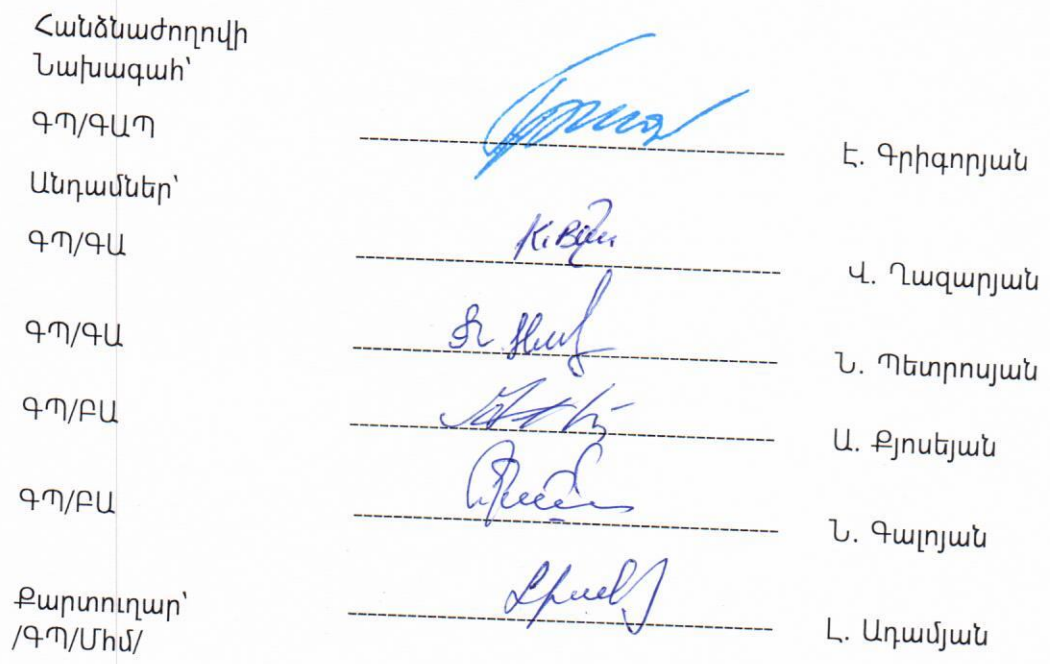 Հանձնաժողովի
Նախագահ՝
ԳՊ/ԳԱՊ Է. Գրիգորյան
Անդամներ՝
ԳՊ/ԳԱ Վ. Ղազարյան
ԳՊ/ԳԱ Ն. Պետրոսյան
ԳՊ/ԲԱ Ա. Քյոսեյան
ԳՊ/ԲԱ Ն. Գալոյան
Քարտուղար՝
/ԳՊ/Միմ/ Լ. Ադամյան